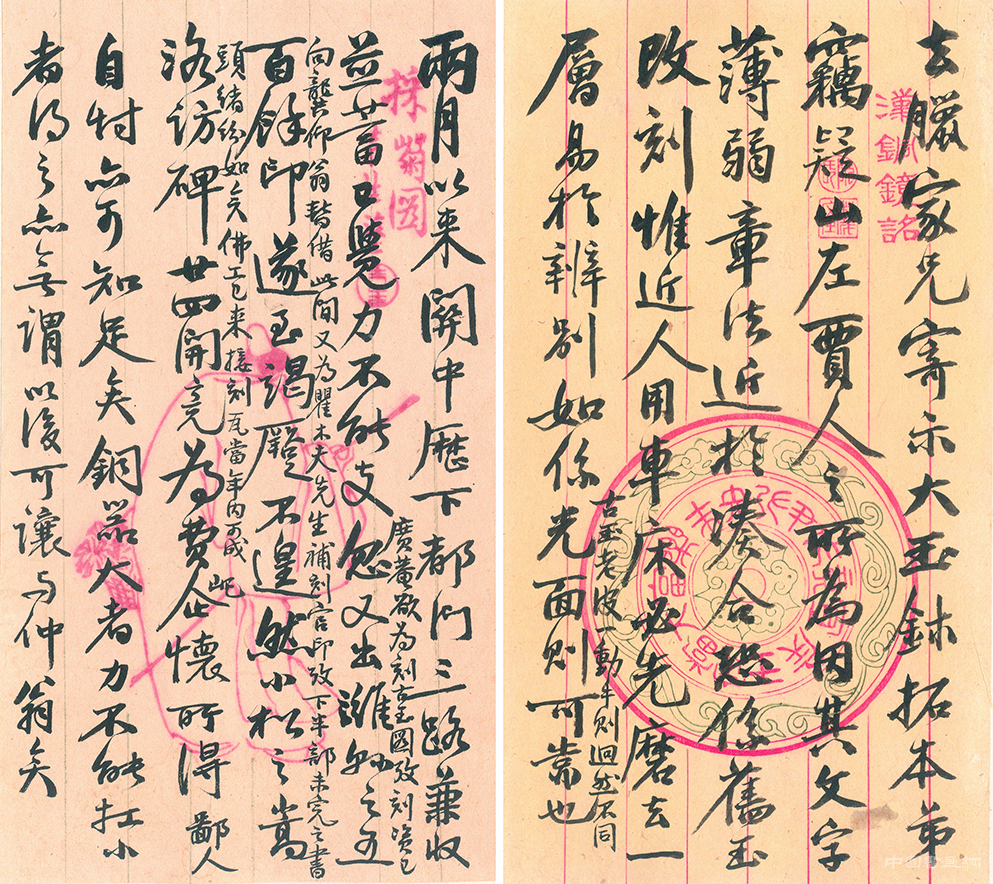 漢銅鏡銘
去臘家兄寄示大玉鉥拓本弟
竊疑山左賈人之所為因其文字
薄弱章法近於湊合恐係舊玉
改刻惟近人用車床必先磨去一
層易於辨別如係光面則可也
古玉老皮一動手則迥然不同
採菊圖
兩月以來關中歷下都門三路兼收
並蓄已覺力不能支忽又出濰縣之五
廣菴欲為刻古玉圖攷刻資已
向龔仰翁暫借此間又為瞿木夫先生補刻官印攷下半部未完之書
頭緒紛如矣佛工已來接刻瓦當年內可成
百餘印遂至竭蹶不遑然小松之嵩
洛訪碑廿四開竟為費屺懷所得鄙人
自忖亦可知足矣銅器大者力不能扛小
者得之亦無謂以後可讓与仲翁矣